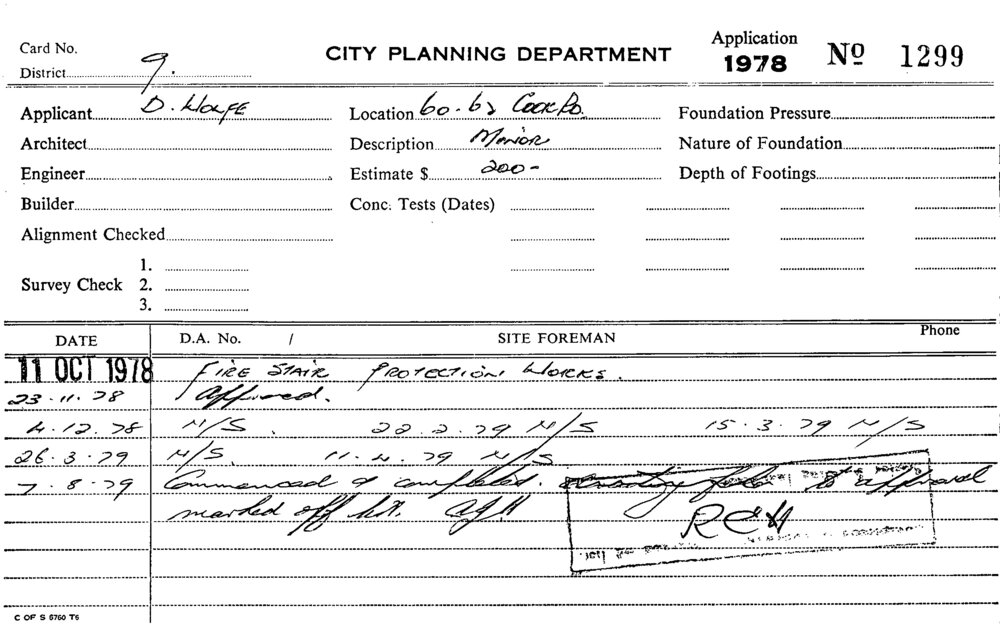 Card No.
District 9.
CITY PLANNING DEPARTMENT
Application
1978 Nº 1299
Applicant D. Wolfe Location 60.62 Cook Rd. Foundation Pressure
Architect Description Minor Nature of Foundation
Engineer Estimate $ 200- Depth of Footings
Builder Conc. Tests (Dates)
Alignment Checked
Survey Check 1.
2.
3.
DATE D.A. No. / SITE FOREMAN Phone
11 OCT 1978 FIRE STAIR PROTECTION WORKS.
23.11.78 Approved.
4.12.78 N/S. 22.2.79 N/S 15.3.79 N/S
26.3.79 N/S. 11.4.79 N/S
7.8.79 Commenced & completed. approval
marked off
RCH
C OF S 6760 T6